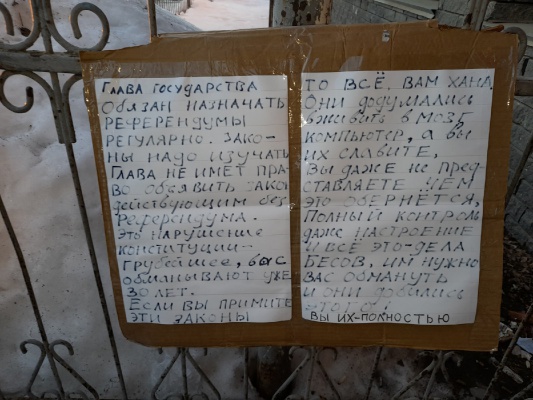 ГЛАВА ГОСУДАРСТВА
ОБЯЗАН НАЗНАЧАТЬ
РЕФЕРЕНДУМЫ
РЕГУЛЯРНО. ЗАКО-
НЫ НАДО ИЗУЧАТЬ
ГЛАВА НЕ ИМЕТ ПРА-
ВО ОБЪЯВИТЬ ЗАКОН
ДЕЙСТВУЮЩИМ БЕЗ
РЕФЕРЕНДУМА.
ЭТО НАРУШЕНИЕ
КОНСТИТУЦИИ-
ГРУБЕЙШЕЕ, ВАС
ОБМАНЫВАЮТ УЖЕ
30 ЛЕТ.
ЕСЛИ ВЫ ПРИМИТЕ
ЭТИ ЗАКОНЫ
ТО ВСЁ. ВАМ ХАНА.
ОНИ ДОДУМАЛИСЬ
ВЖИВИТЬ В МОЗГ
КОМПЬЮТЕР, А ВЫ
ИХ СЛАВИТЕ,
ВЫ ДАЖЕ НЕ ПРЕД-
СТАВЛЯЕТЕ ЧЕМ
ЭТО ОБЕРНЁТСЯ,
ПОЛНЫЙ КОНТРОЛЬ
ДАЖЕ НАСТРОЕНИЕ
И ВСЁ ЭТО-ДЕЛА
БЕСОВ, ИМ НУЖНО
ВАС ОБМАНУТЬ
И ОНИ ДОБИЛИСЬ
ЭТОГО.
ВЫ ИХ-ПОЛНОСТЬЮ